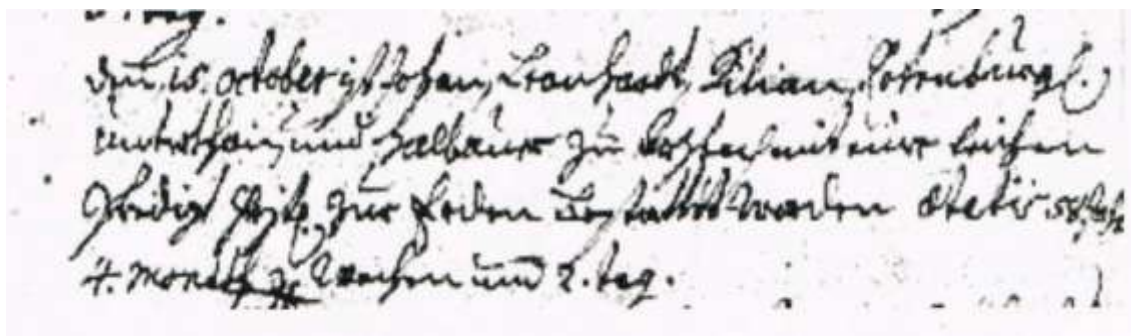 2. tag.
den 15. october ist Johan, Leonhardt, Kilian, Rotenburgl.
unterthan, und halbaur zu mit einer leichen
Predigt Christl. zur Erden bestattet worden ætatis 58. Jahr
4. Monath 3. Wochen und 2. tag.